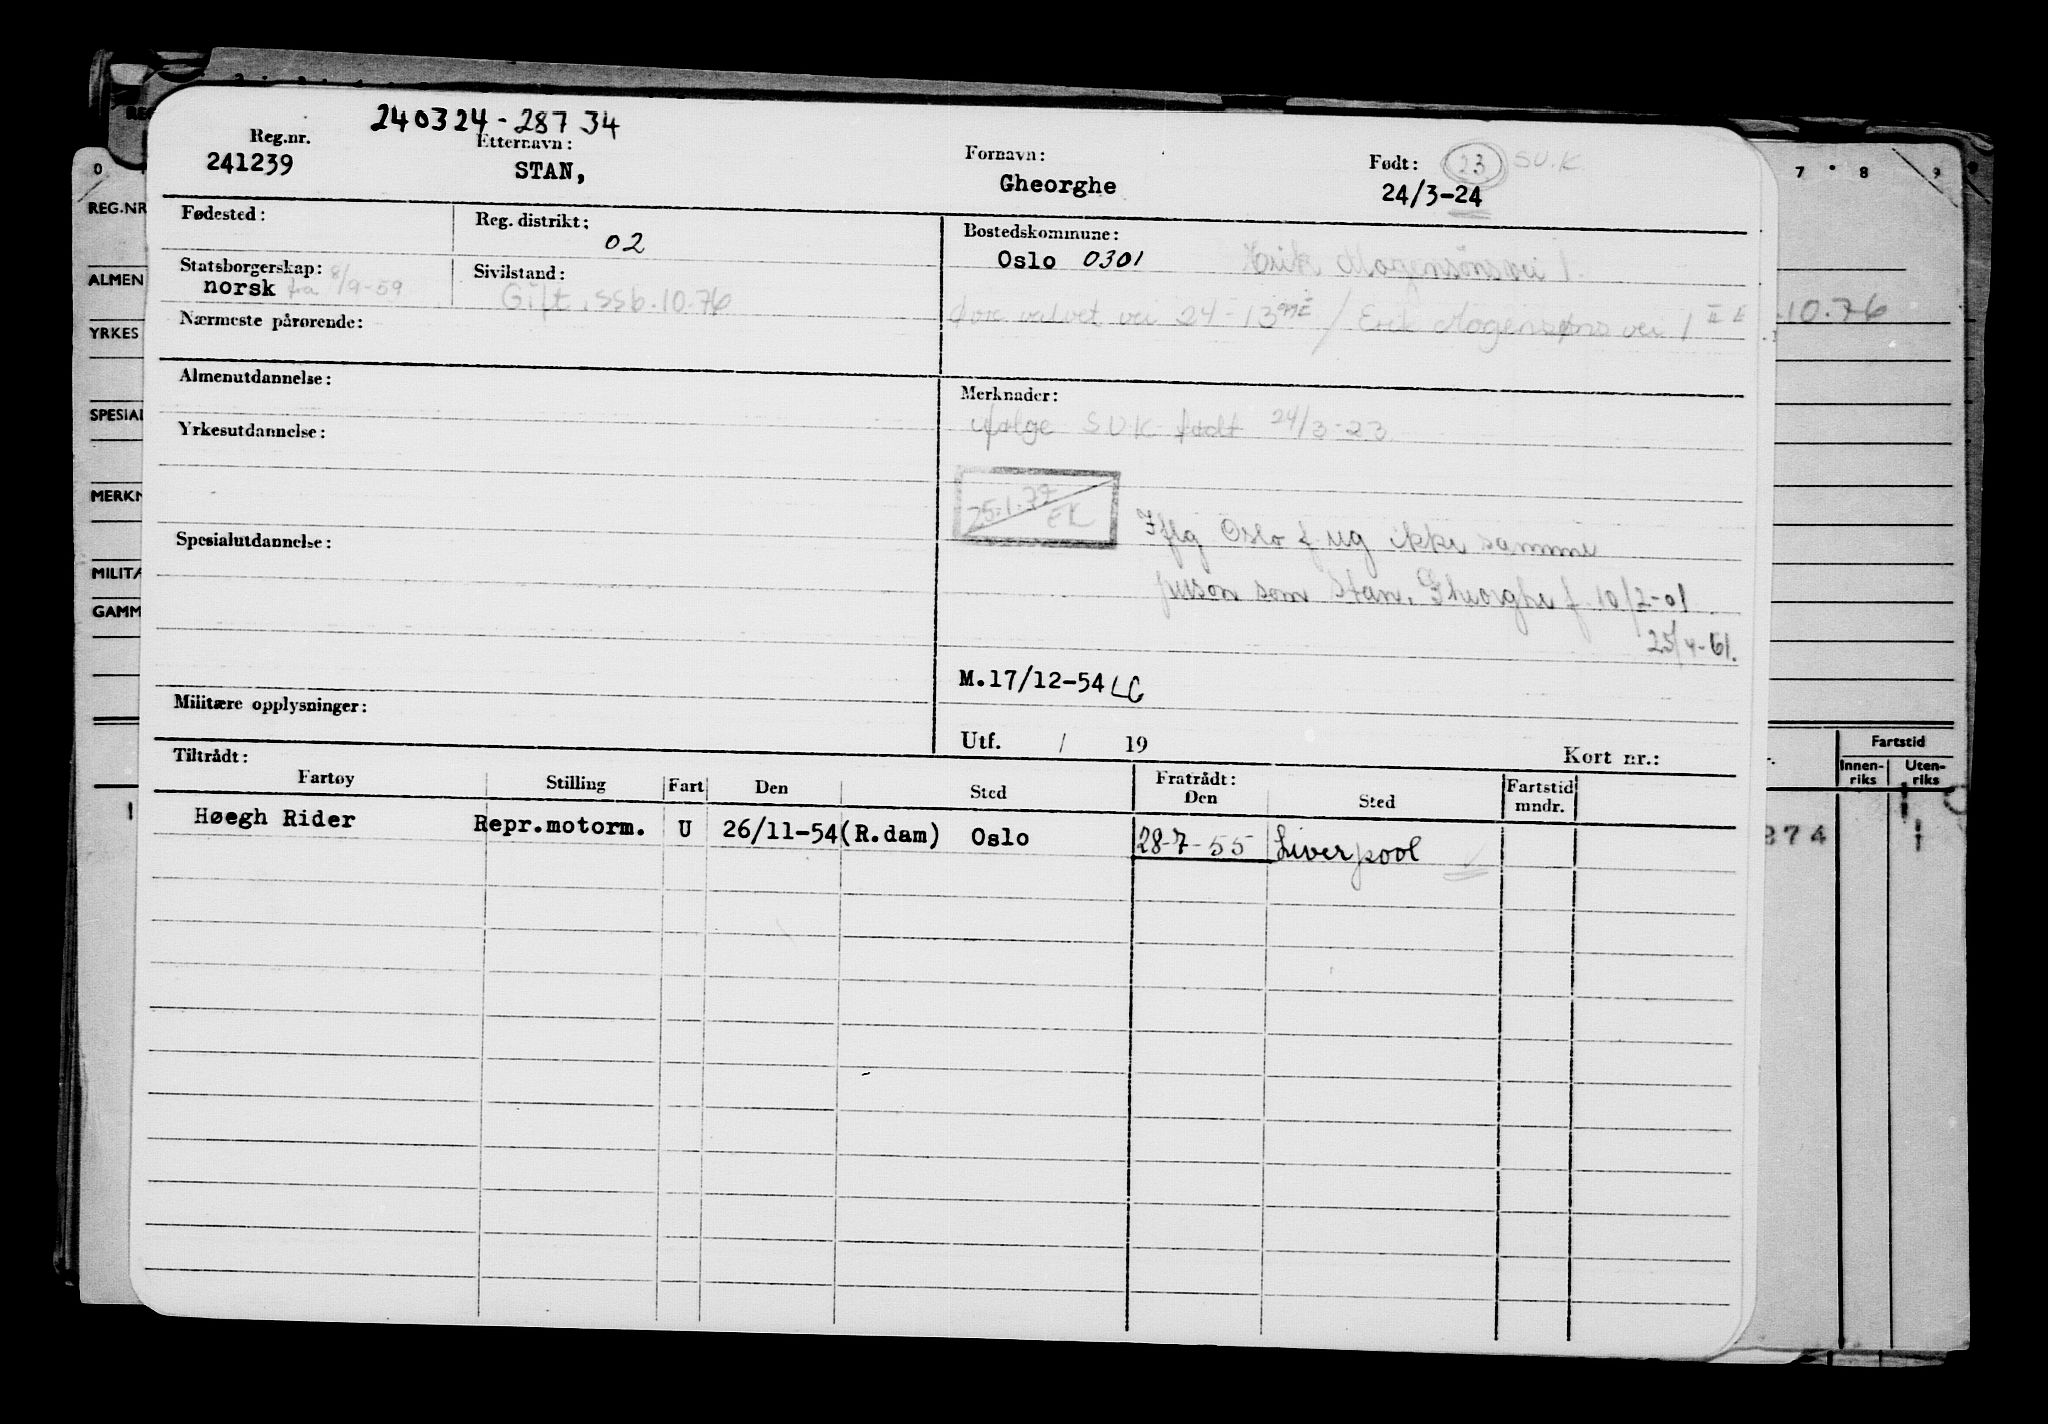 240324-28734
Reg.nr. Etternavn: Fornavn: Født: 23 SUK
241239 STAN, Gheorghe 24/3-24
Fødested: Reg. distrikt: 02 Bostedskommune:
Oslo 0301 Erik Mogensønsvei 1.
Statsborgerskap: Sivilstand:
norsk fra 8/9-59 Gift. SSb. 10.76
vei 24-13 / Erik Mogensøns vei 1
Nærmeste pårørende:
Almenutdannelse: Merknader:
ifølge SUK født 24/3-23
Yrkesutdannelse:
25.1.77
EK
Iflg Oslo f ug ikke samme
Spesialutdannelse:
person som Stan, Gheorghe f. 10/2-01
25/4-61.
M.17/12-54 LG
Militære opplysninger:
Utf. / 19 Kort nr.:
Tiltrådt: Fratrådt:
Fartøy Stilling Fart Den Sted Den Sted Fartstid mndr.
Høegh Rider Repr.motorm. U 26/11-54 (R.dam) Oslo 28-7-55 Liverpool
0 7 8 9
REG.NR
ALMEN
YRKES
SPESIAL
MERKN
MILITÆ
GAMM
10.76
Fartstid
Innen-
riks
Uten-
riks
274